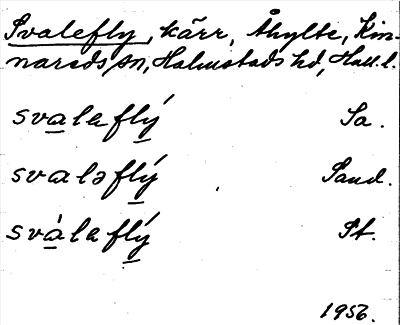 Svalefly, kärr, Åhylte, Kin-
nareds sn, Halmstads hd, Hall.l.
svalaflý Sa.
svaləflý Sand.
sválaflý St.
1956.